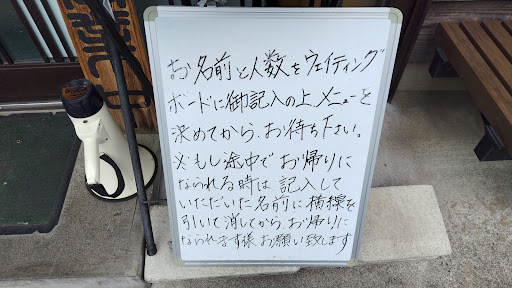 お名前と人数をウェイティング
ボードに御記入の上メニューを
決めてから、お待ち下さい。
※もし途中でお帰りに
なられる時は記入して
いただいた名前に横線を
引いて消してから、お帰りに
なられます様お願い致します